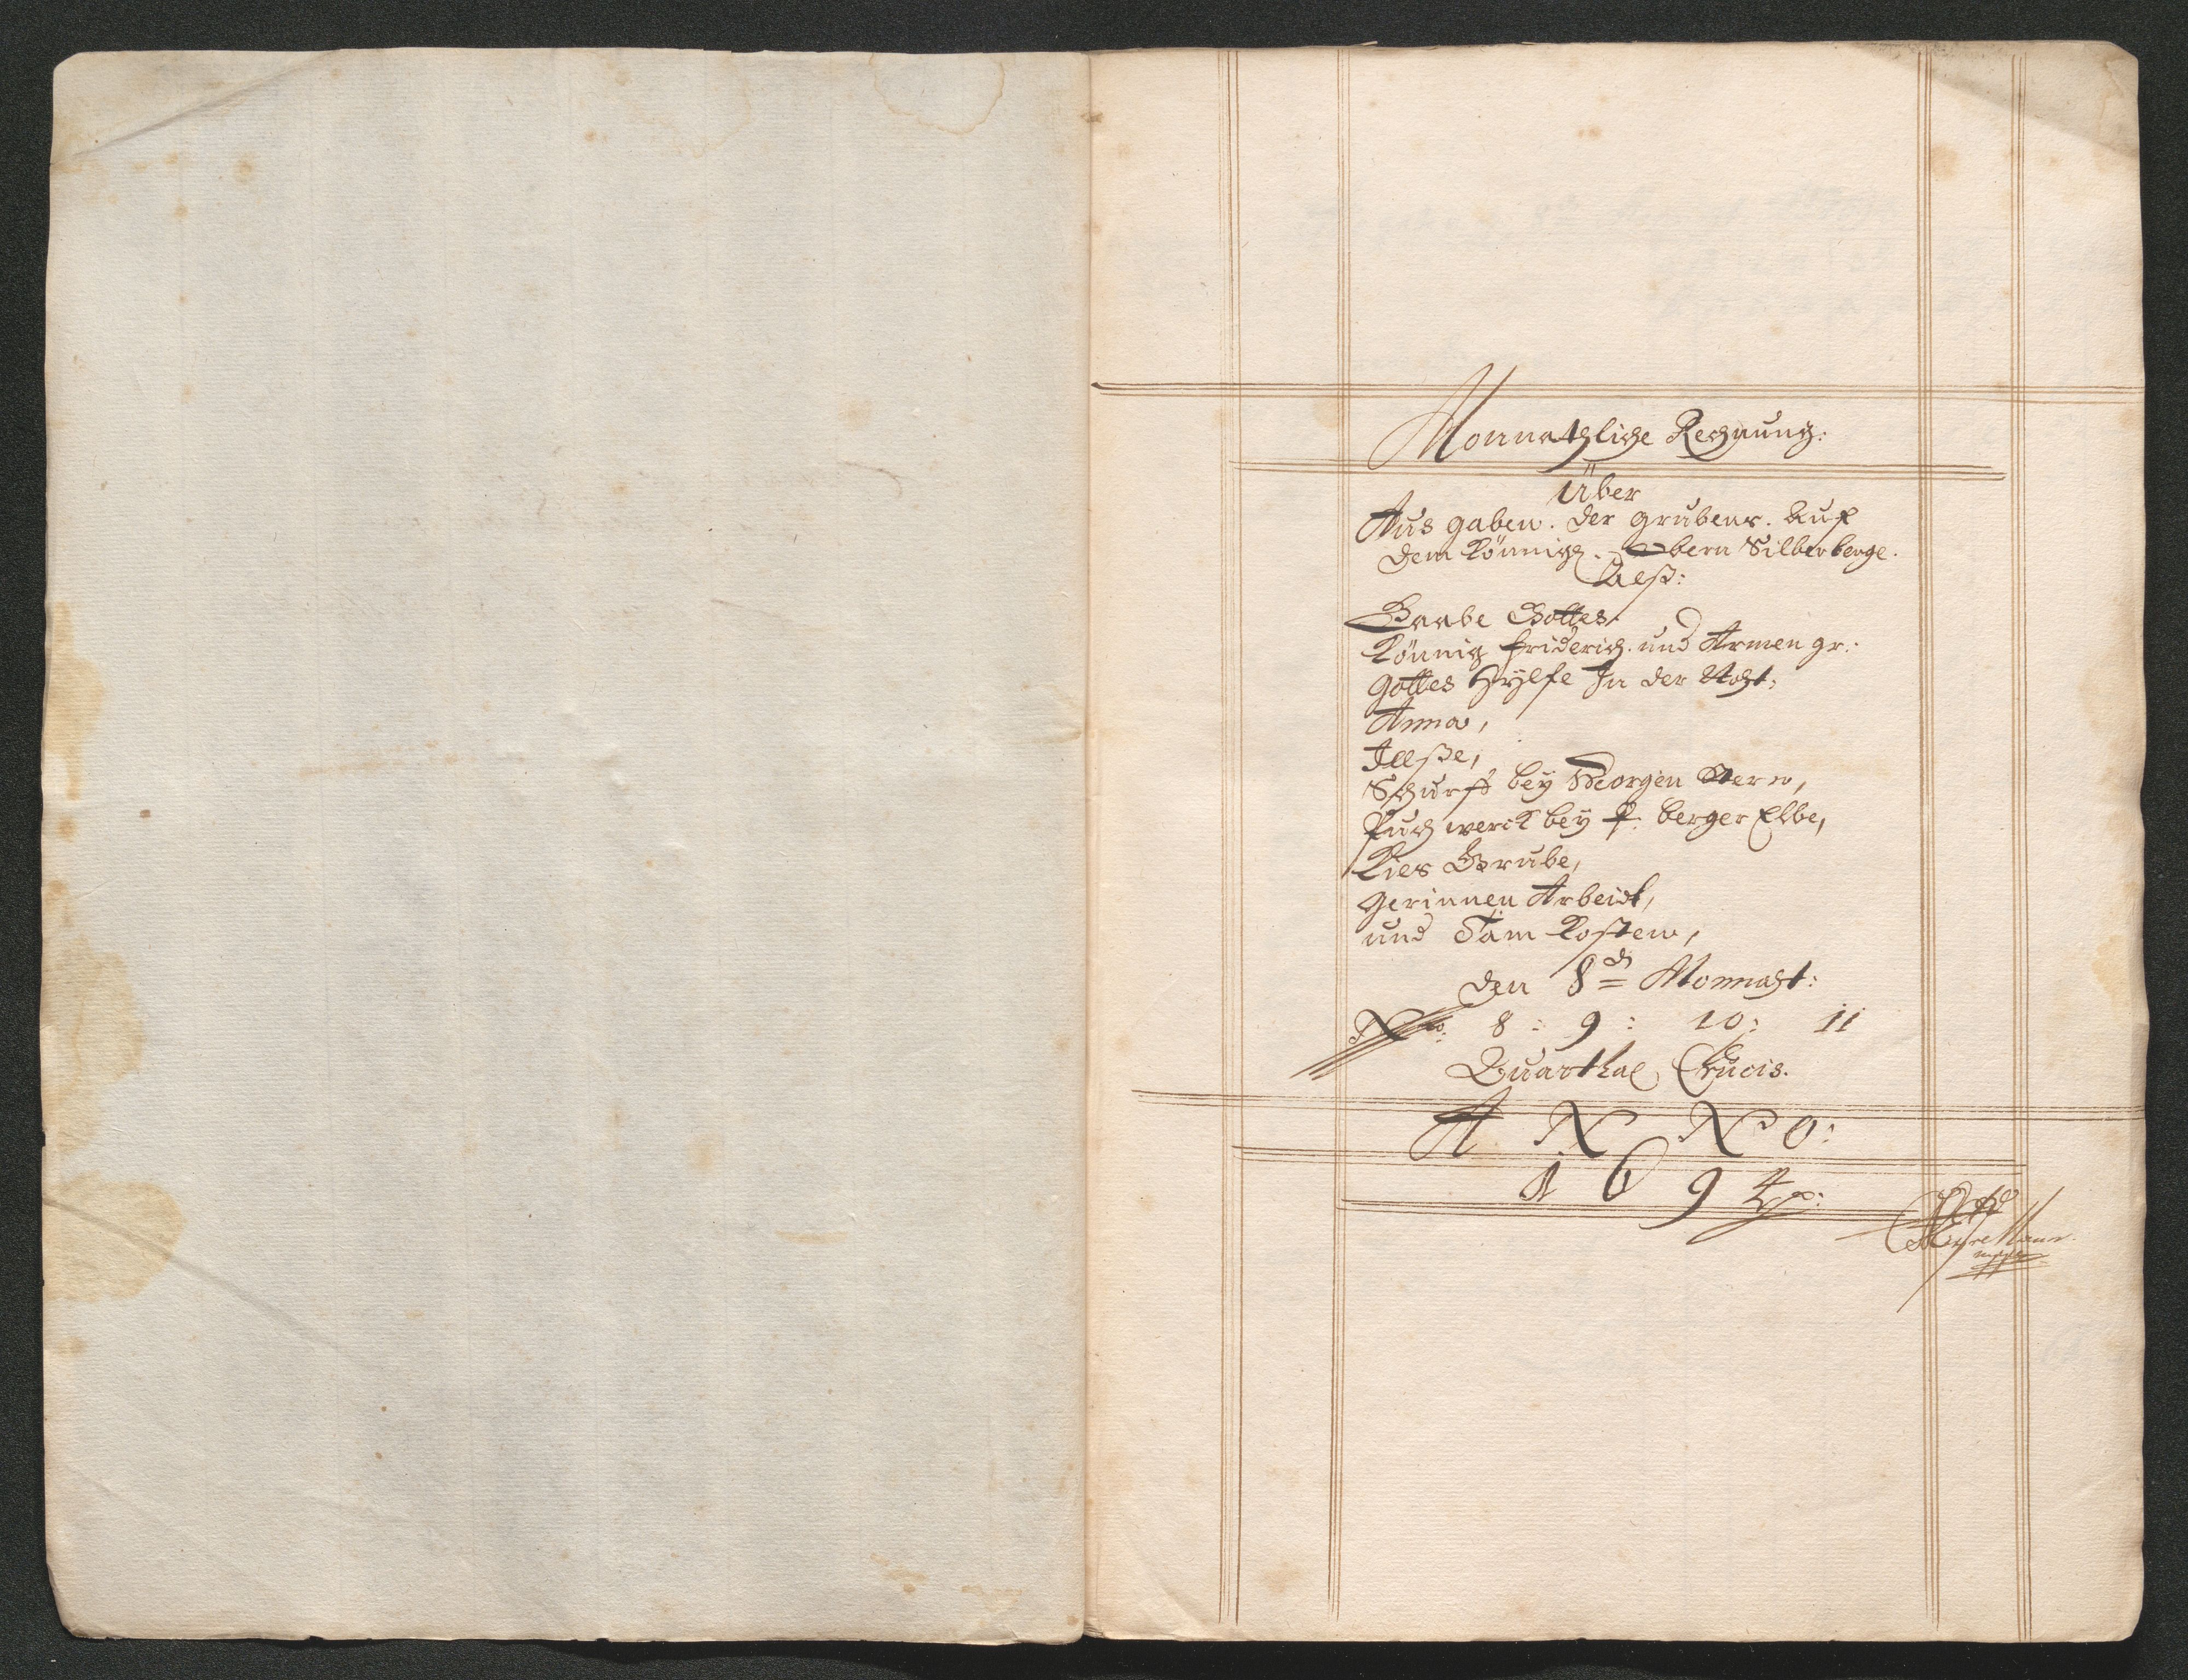 Monnathliche Rechnung:
Über
Aus gaben. der grubens. Auf
dem Königh. Obern Silberberge.
Alß:
Gaabe Gottes.
Könnig friderich. und Armen gr.
gottes Hylfe In der Noht,
Anna,
Illße,
Schurff bey Georgen
Puch werck bey berger Elbe,
Kies Grube,
gerinnen Arbeidt,
und Täm Kosten,
den 8 Monnaht:
No: 8: 9: 10: 11
Quarthal Crucis.
ANNO:
1694